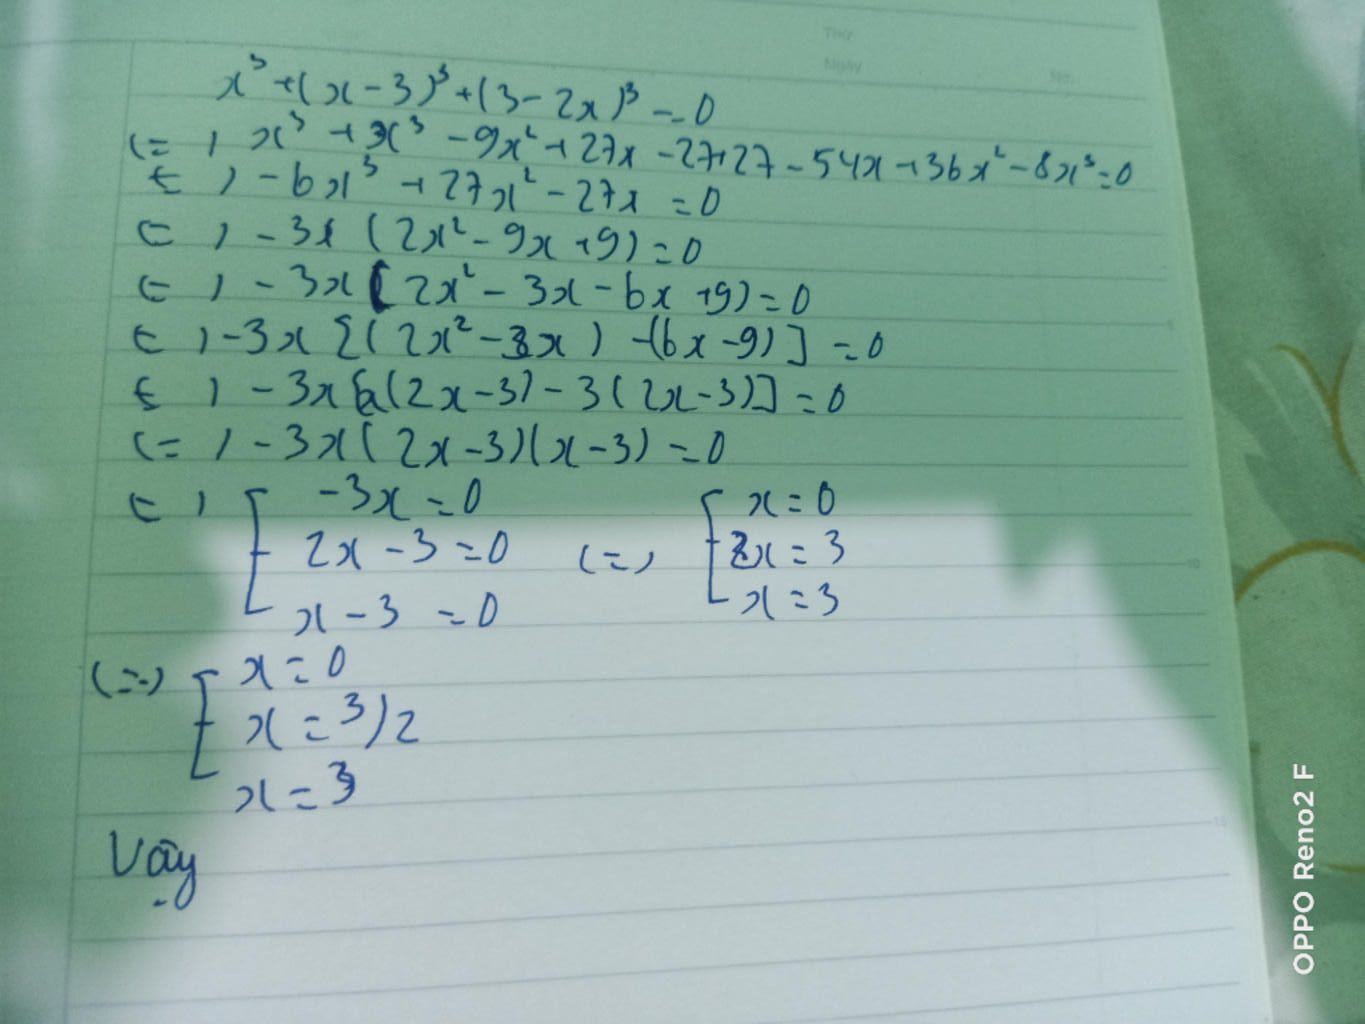 Thứ
Ngày No.
x³ + (x - 3)³ + (3 - 2x)³ = 0
(=) x³ + x³ - 9x² + 27x - 27 + 27 - 54x + 36x² - 8x³ = 0
(=) - 6x³ + 27x² - 27x = 0
(=) - 3x (2x² - 9x + 9) = 0
(=) - 3x (2x² - 3x - 6x + 9) = 0
(=) - 3x [(2x² - 3x) - (6x - 9)] = 0
(=) - 3x [x(2x - 3) - 3(2x - 3)] = 0
(=) - 3x (2x - 3)(x - 3) = 0
(=) [ -3x = 0 [ x = 0
2x - 3 = 0 (=) 2x = 3
x - 3 = 0 x = 3
(=) [ x = 0
x = 3/2
x = 3
Vậy
OPPO Reno2 F